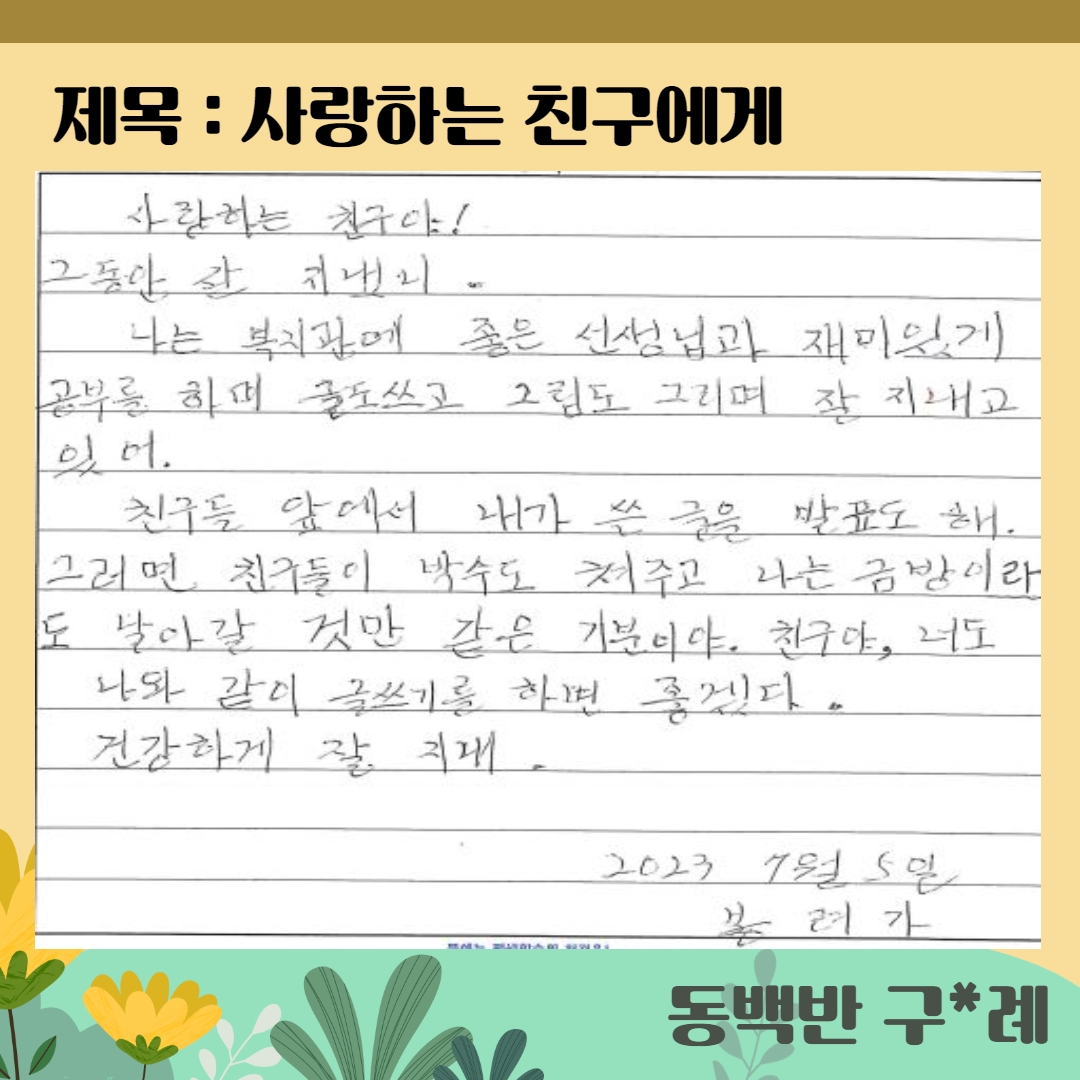 제목 : 사랑하는 친구에게
사랑하는 친구야!
그동안 잘 지냈니.
나는 복지관에 좋은 선생님과 재미있게
공부를 하며 글도쓰고 그림도 그리며 잘 지내고
있어.
친구들 앞에서 내가 쓴 글을 발표도 해.
그러면 친구들이 박수도 쳐주고 나는 금방이라
도 날아갈 것만 같은 기분이야. 친구야, 너도
나와 같이 글쓰기를 하면 좋겠다.
건강하게 잘 지내.
2023 7월 5일
가
동백반 구*례